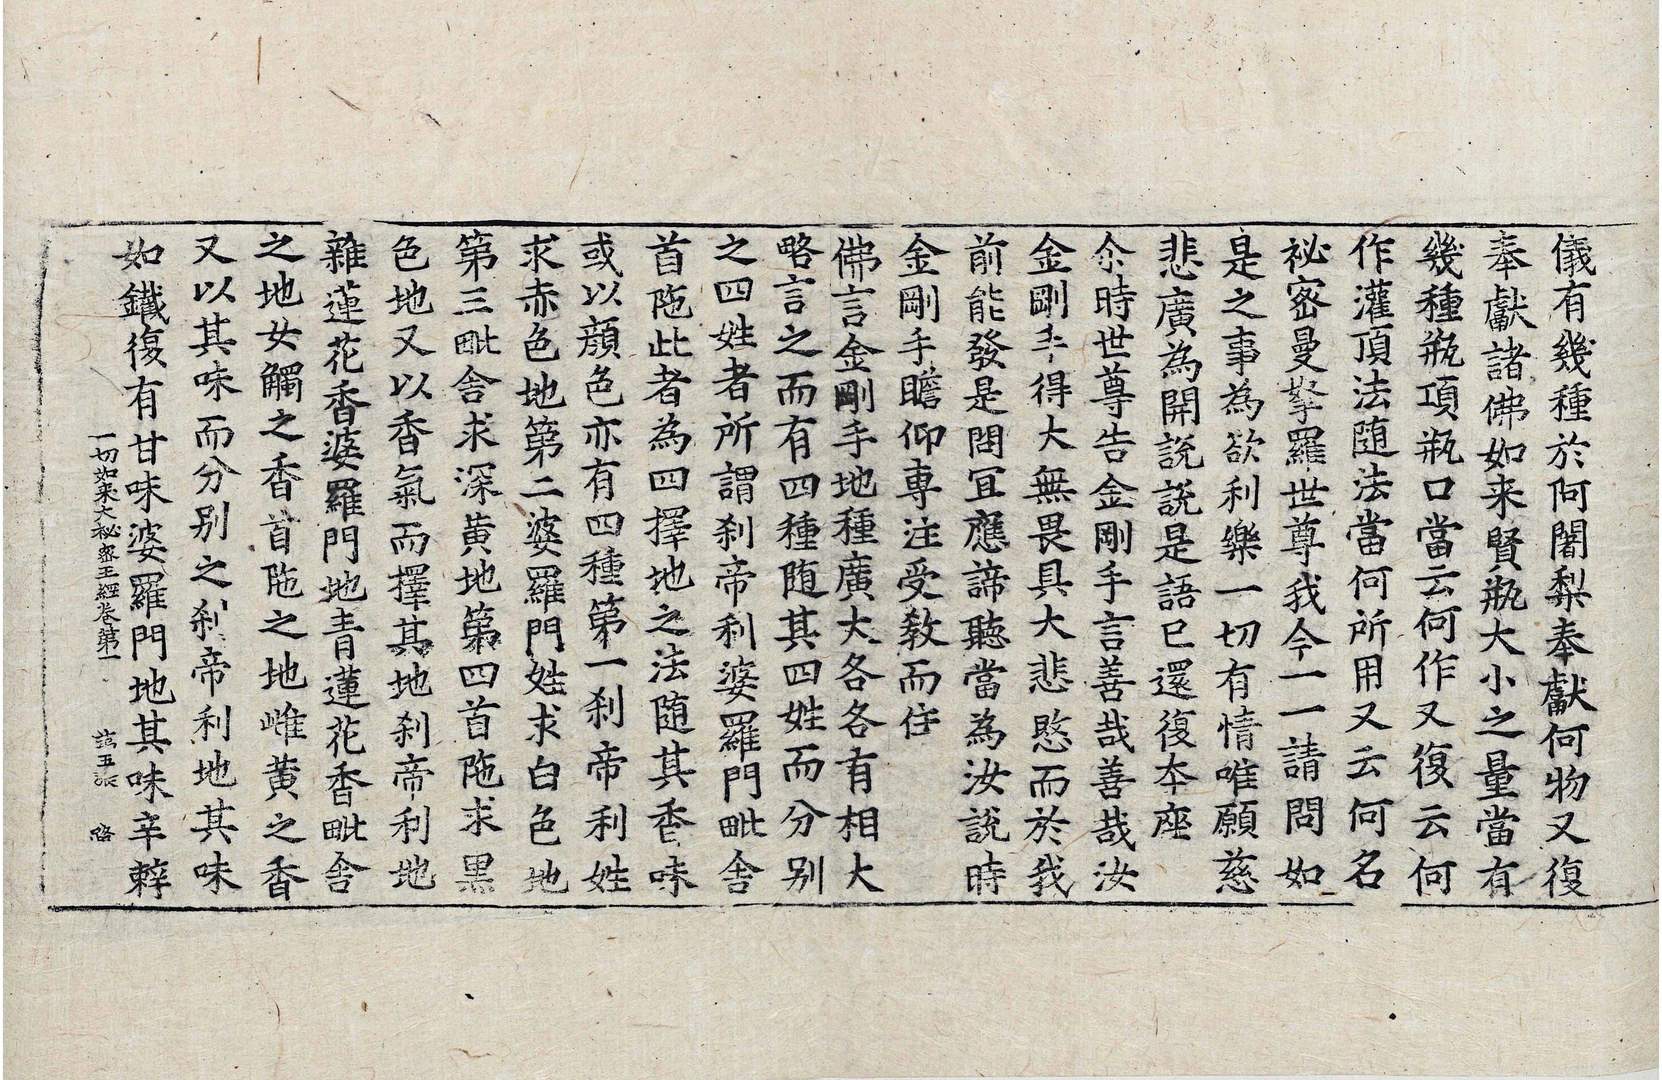 儀有幾種於阿闍梨奉獻何物又復
奉獻諸佛如来賢瓶大小之量當有
幾種瓶項瓶口當云何作又復云何
作灌頂法随法當何所用又云何名
祕密曼拏羅世尊我今一一請問如
是之事為欲利樂一切有情唯願慈
悲廣為開說說是語已還復本座
尒時世尊告金剛手言善哉善哉汝
金剛手得大無畏具大悲愍而於我
前能發是問冝應諦聽當為汝說時
金剛手瞻仰專注受教而住
佛言金剛手地種廣大各各有相大
略言之而有四種随其四姓而分别
之四姓者所謂刹帝利婆羅門毗舍
首陁此者為四擇地之法随其香味
或以顔色亦有四種第一刹帝利姓
求赤色地第二婆羅門姓求白色地
第三毗舍求深黄地第四首陁求黑
色地又以香氣而擇其地刹帝利地
雜蓮花香婆羅門地青蓮花香毗舍
之地女觸之香首陁之地雌黄之香
又以其味而分别之刹帝利地其味
如鐵復有甘味婆羅門地其味辛辢
一切如来大秘密王經卷第一 第五張 路